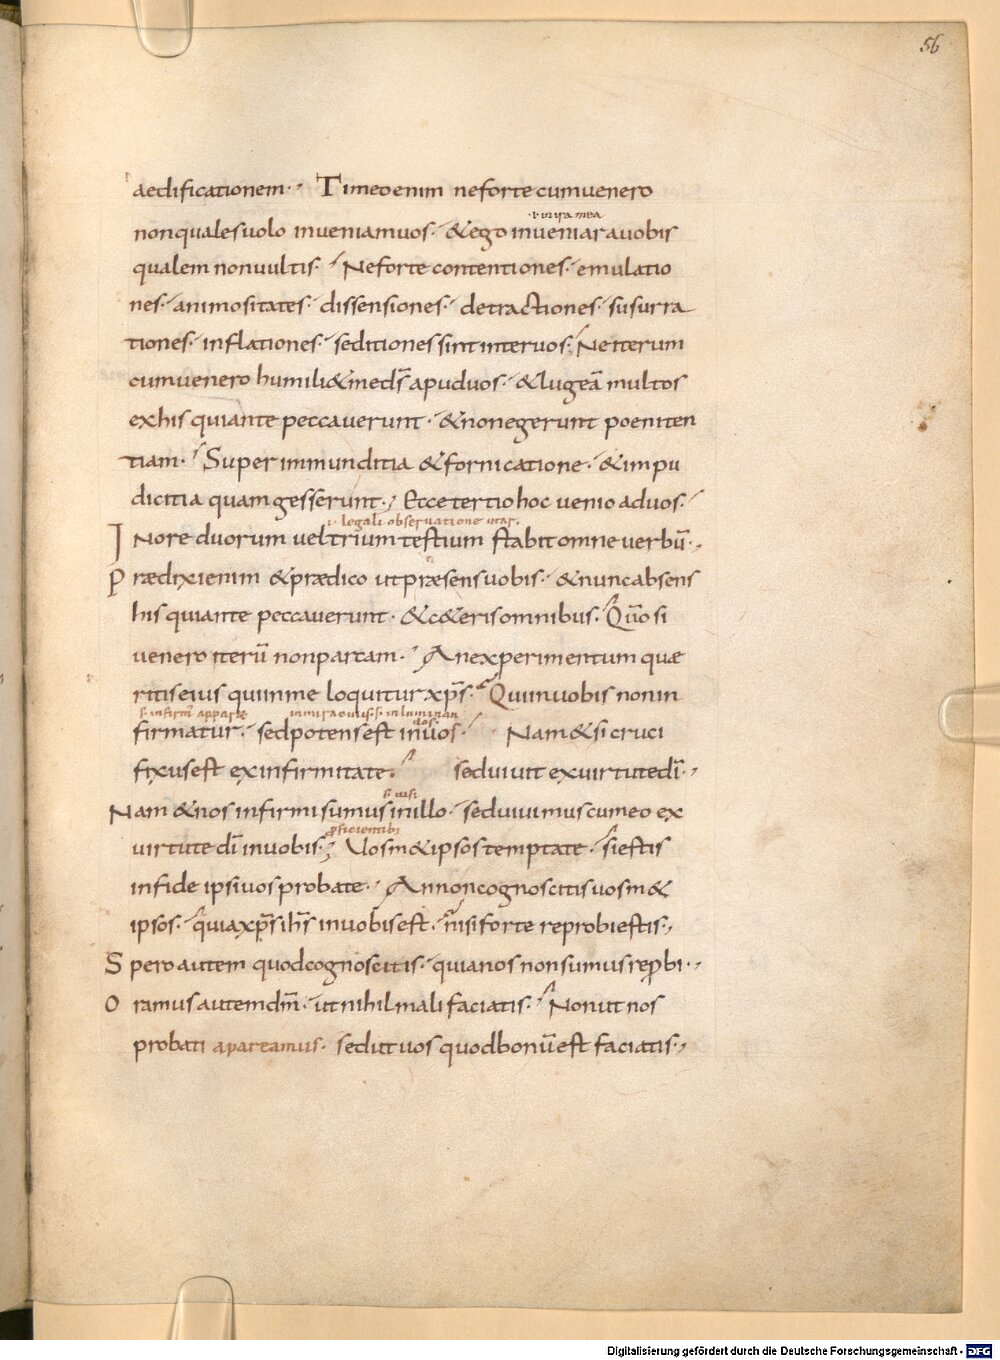 56
aedificationem · Timeo enim ne forte cum venero
non quales volo inveniam vos · & ego inveniar a vobis
·i· in ira mea
qualem non vultis · Ne forte contentiones · emulatio
nes · animositates · dissensiones · detractiones · susurra
tiones · inflationes · seditiones sint inter vos · Ne iterum
cum venero humili& me ds̄ apud vos · & lugeā multos
ex his qui ante peccaverunt · & non egerunt poeniten
tiam · Super immunditia & fornicatione · & impu
dicitia quam gesserunt · Ecce tertio hoc venio ad vos ·
·i· legali observatione
IN ore duorum vel trium testium stabit omne verbū ·
Prædixi enim & prædico ut præsens vobis · & nunc absens
his qui ante peccaverunt · & c&eris omnibus · Qūo si
venero iterū non parcam · An experimentum quæ
ritis eius qui in me loquitur xp̄s · Qui in vobis non in
firmatur · sed potens est in vos · Nam & si cruci
fixus est ex infirmitate · sed vivit ex virtute dī ·
Nam & nos infirmi sumus in illo · sed vivimus cum eo ex
virtute dī in vobis · Vosm& ipsos temptate · si estis
in fide ipsi vos probate · An non cognoscitis vosm&
ipsos · quia xp̄s ih̄s in vobis est · nisi forte reprobi estis ·
Spero autem quod cognoscitis · quia nos non sumus rep̄bi ·
Oramus autem dm̄ · ut nihil mali faciatis · Non ut nos
probati apareamus · sed ut vos quod bonū est faciatis ·
Digitalisierung gefördert durch die Deutsche Forschungsgemeinschaft - DFG